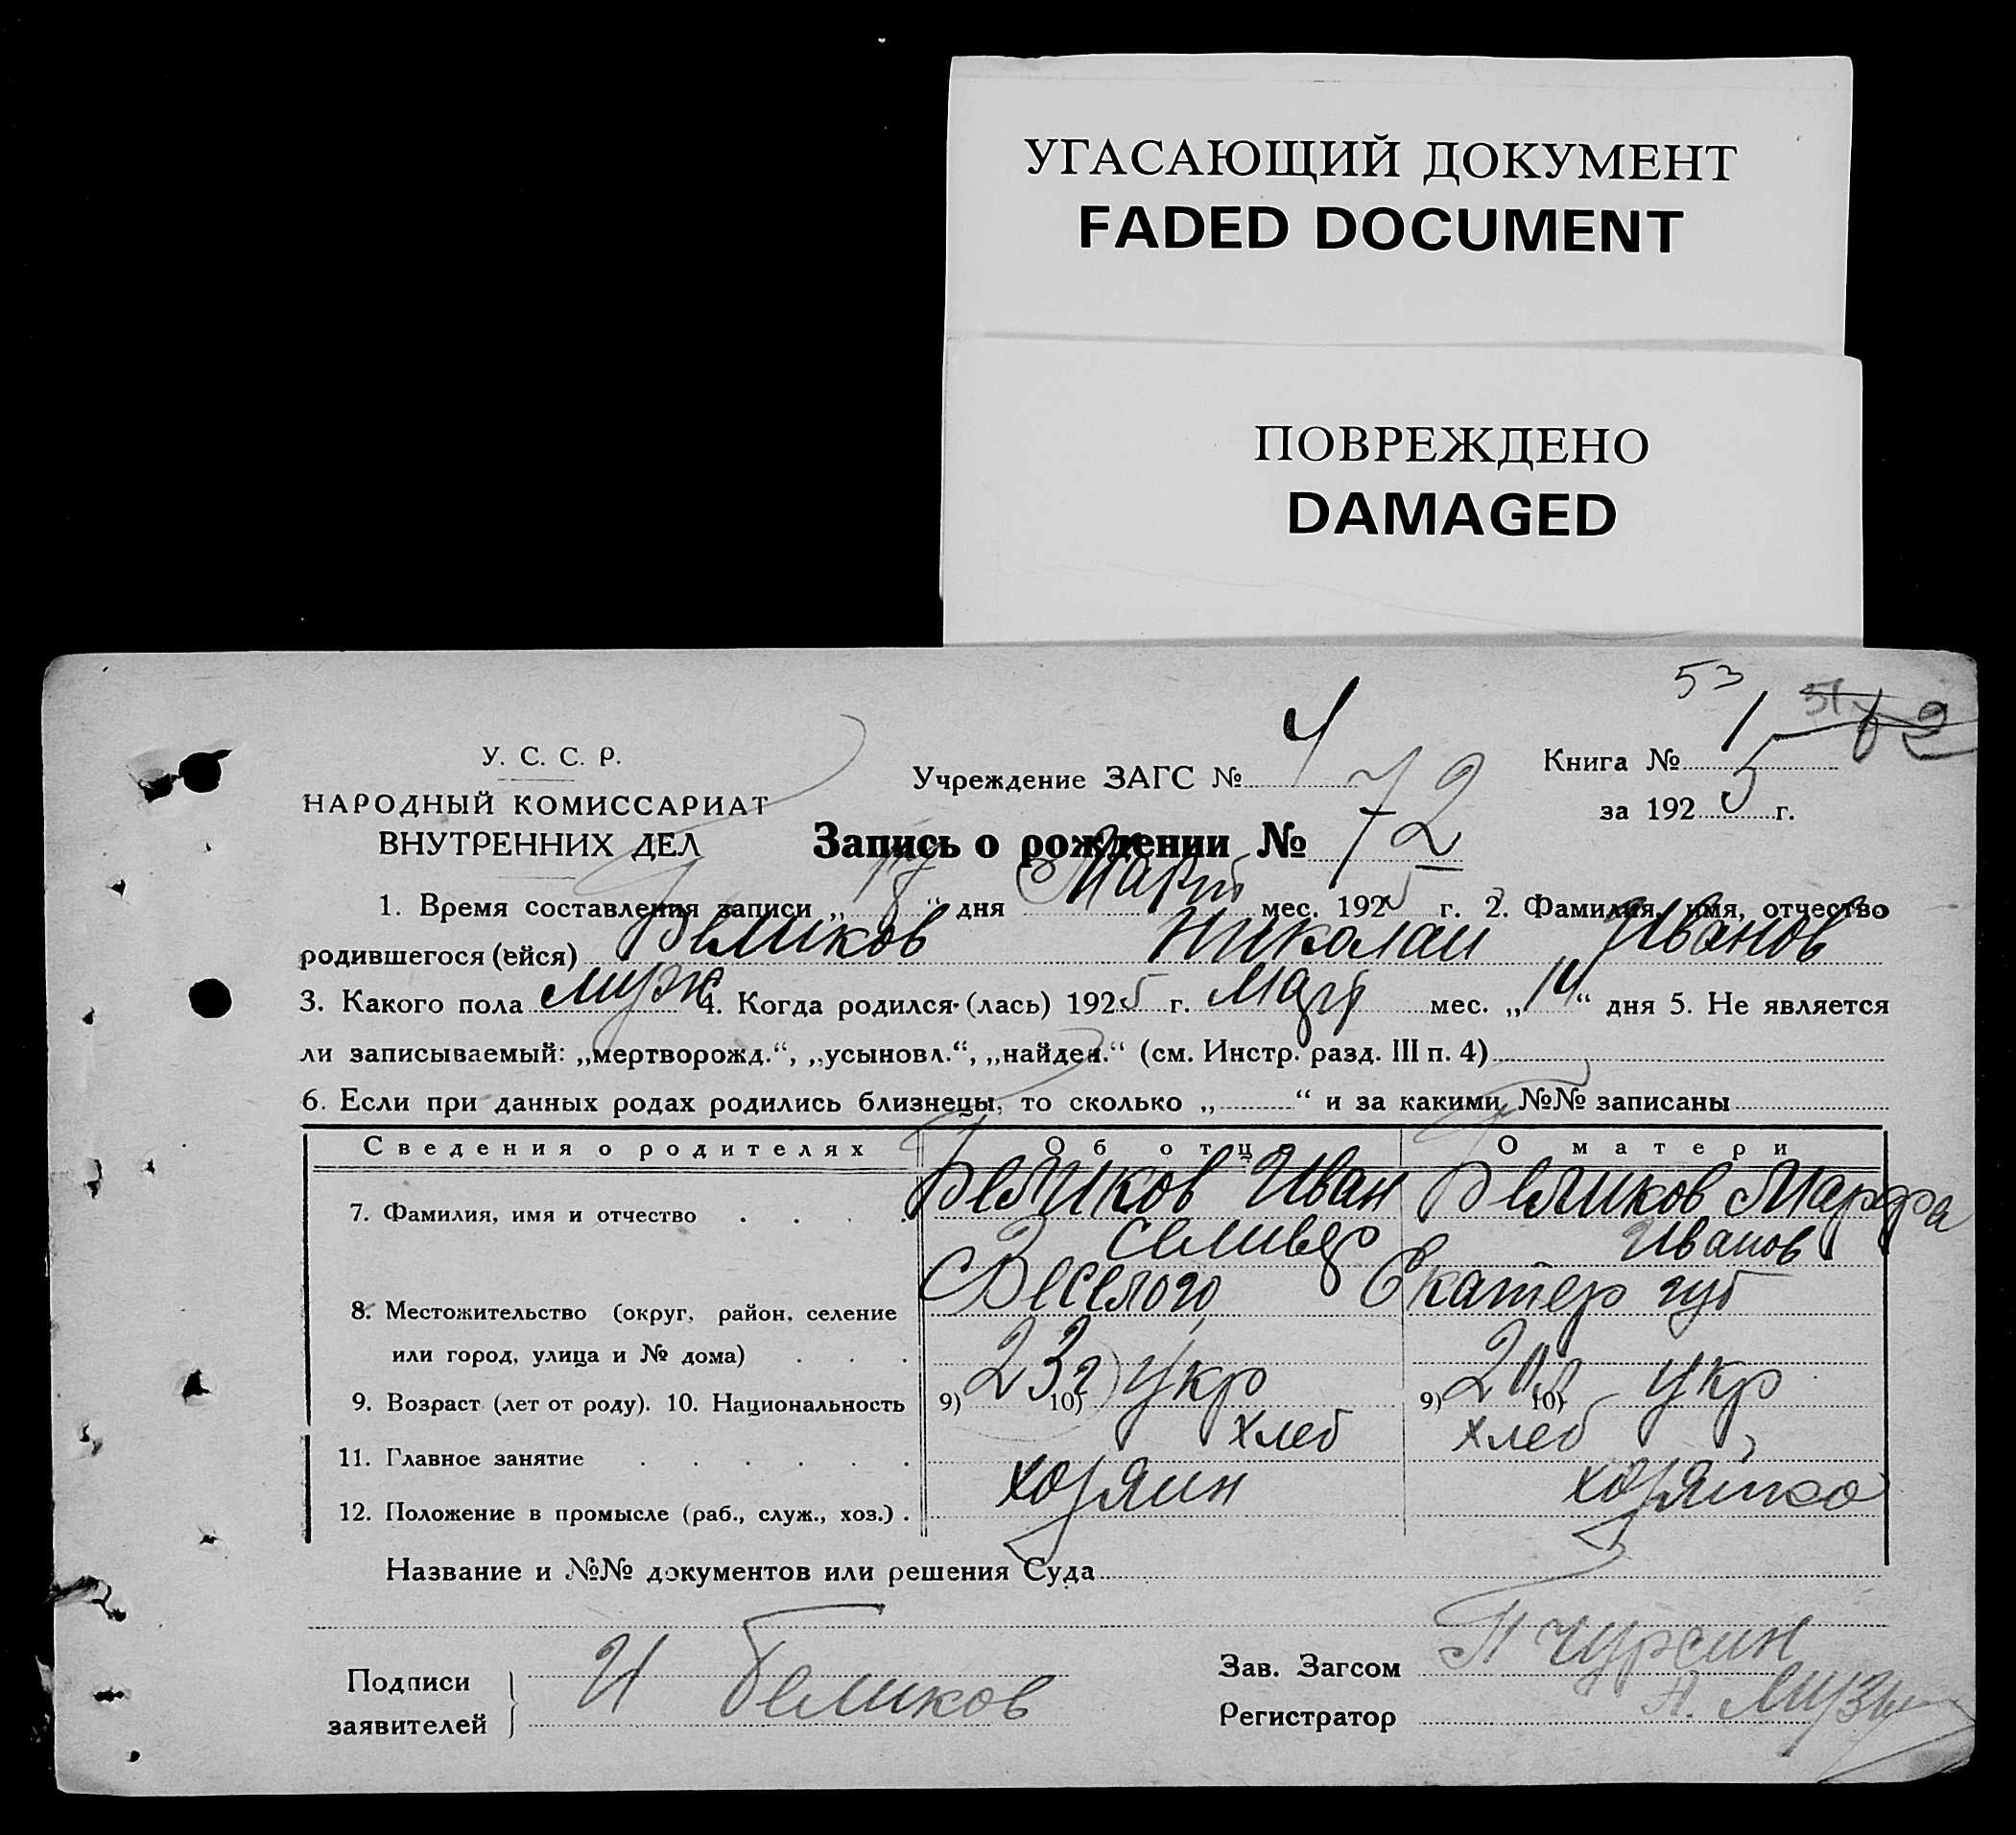 УГАСАЮЩИЙ ДОКУМЕНТ
FADED DOCUMENT
ПОВРЕЖДЕНО
DAMAGED
53
У. С. С. Р.
НАРОДНЫЙ КОМИССАРИАТ
ВНУТРЕННИХ ДЕЛ
Учреждение ЗАГС № 4
Книга № 1
за 1925 г.
Запись о рождении № 72
1. Время составления записи „ “ дня Март мес. 1925 г. 2. Фамилия, имя, отчество
родившегося (ейся) Великов Николай Иванов
3. Какого пола муж 4. Когда родился (лась) 1925 г. Март мес. „14“ дня 5. Не является
ли записываемый: „мертворожд.“, „усыновл.“, „найден.“ (см. Инстр. разд. III п. 4)
6. Если при данных родах родились близнецы, то сколько „ “ и за какими №№ записаны
Сведения о родителях Об отце О матери
7. Фамилия, имя и отчество Великов Иван Великов Марфа
Селивер Иванов
8. Местожительство (округ, район, селение Веселого Екатер губ
или город, улица и № дома)
9. Возраст (лет от роду). 10. Национальность 9) 23 10) укр 9) 20 10) укр
11. Главное занятие хлеб хлеб
12. Положение в промысле (раб., служ., хоз.) хозяин хозяйка
Название и №№ документов или решения Суда
Подписи
заявителей
И Великов
Зав. Загсом П Чурсин
Регистратор